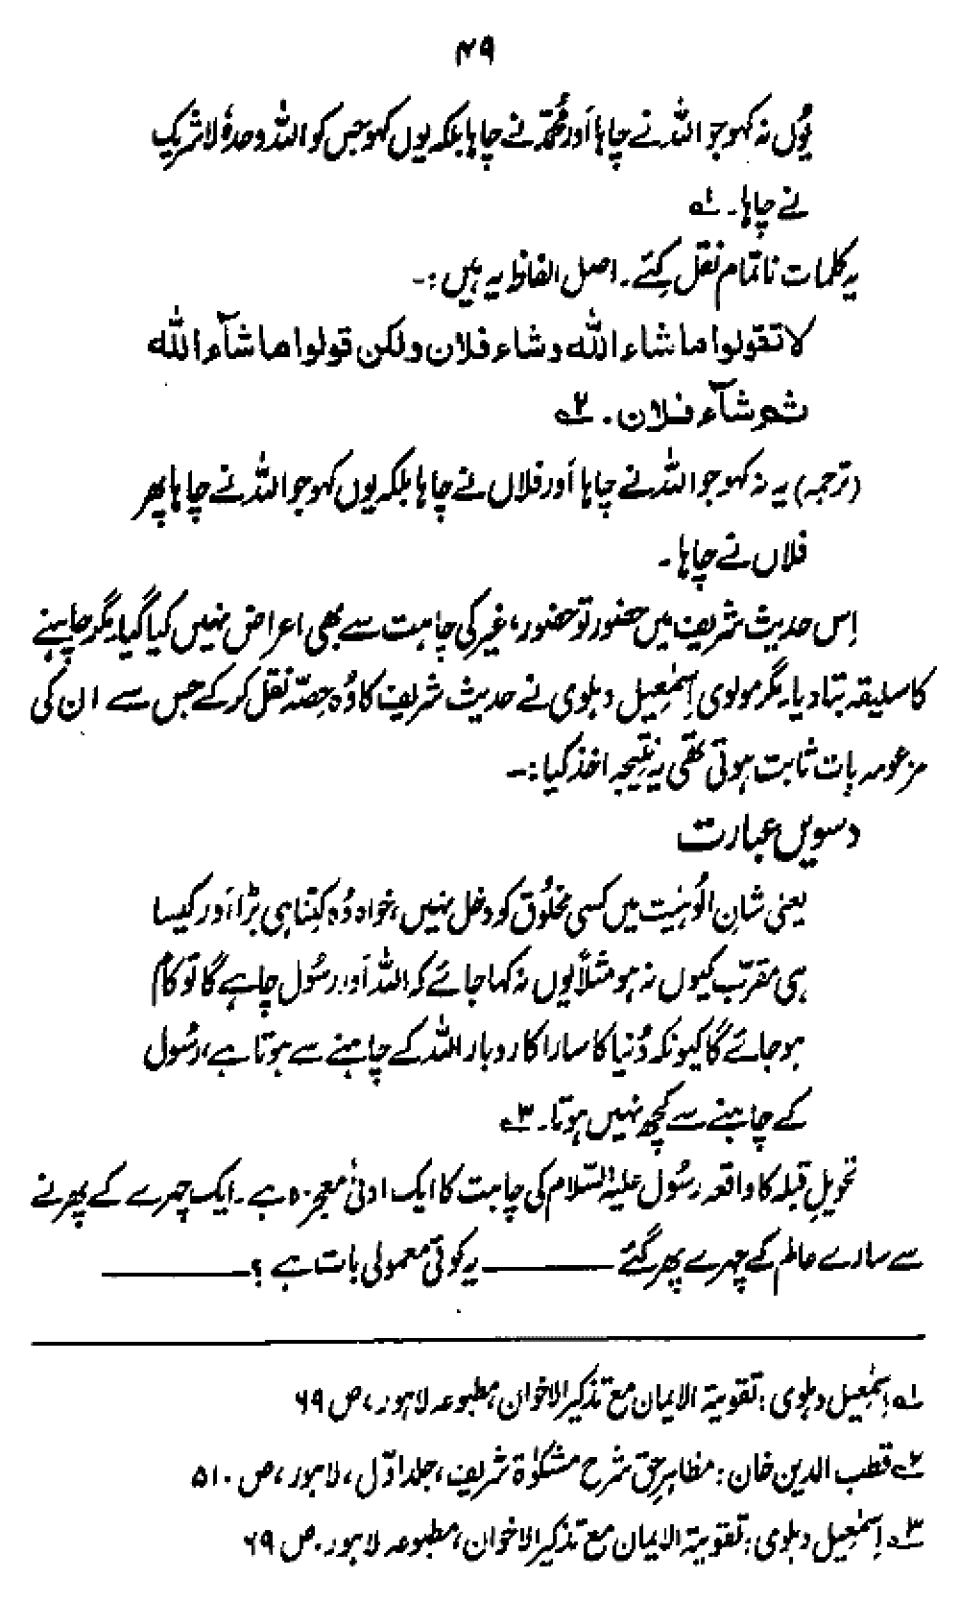 ۴۹
یُوں نہ کہو جو اللہ نے چاہا اَور محمّد نے چاہا بلکہ یوں کہو جس کو اللہ وحدہٗ لا شریک
نے چاہا۔ ؎۱
یہ کلمات ناتمام نقل کِئے۔ اصل الفاظ یہ ہیں :۔
لا تقولوا ما شاء اللّٰہ و شاء فلان ولکن قولوا ما شآء اللّٰہ
ثم شآء فلان۔ ؎۲
(ترجمہ) یہ نہ کہو جو اللہ نے چاہا اَور فلاں نے چاہا بلکہ یوں کہو جو اللہ نے چاہا پھر
فلاں نے چاہا۔
اِس حدیث شریف میں حضور تو حضور، غیر کی چاہت سے بھی اعراض نہیں کیا گیا۔ مگر چاہنے
کا سلیقہ بتا دیا۔ مگر مولوی اِسمٰعیل دہلوی نے حدیث شریف کا وُہ حِصّہ نقل کر کے جس سے ان کی
مزعومہ بات ثابت ہوتی تھی یہ نتیجہ اخذ کیا :۔
دسویں عبارت
یعنی شانِ الُوہیّت میں کسی مخلُوق کو دخل نہیں، خواہ وُہ کِتنا ہی بڑا اَور کیسا
ہی مقرّب کیوں نہ ہو مثلاً یوں نہ کہا جائے کہ اللہ اَور رسُول چاہے گا تو کام
ہو جائے گا کیونکہ دُنیا کا سارا کاروبار اللہ کے چاہنے سے ہوتا ہے، رسُول
کے چاہنے سے کچھ نہیں ہوتا۔ ؎۳
تحویلِ قبلہ کا واقعہ رسُول علیہ السّلام کی چاہت کا ایک ادنیٰ معجزہ ہے۔ ایک چہرے کے پھرنے
سے سارے عالم کے چہرے پھر گئے ——— یہ کوئی معمولی بات ہے ؟ ———
؎۱ اِسمٰعیل دہلوی : تقویۃ الایمان مع تذکیر الاخوان، مطبوعہ لاہور، ص ۶۹
؎۲ قطب الدین خان : مظاہرِ حق شرح مشکوٰۃ شریف، جلد اوّل، لاہور، ص ۵۱۰
؎۳ اِسمٰعیل دہلوی : تقویۃ الایمان مع تذکیر الاخوان، مطبوعہ لاہور۔ ص ۶۹